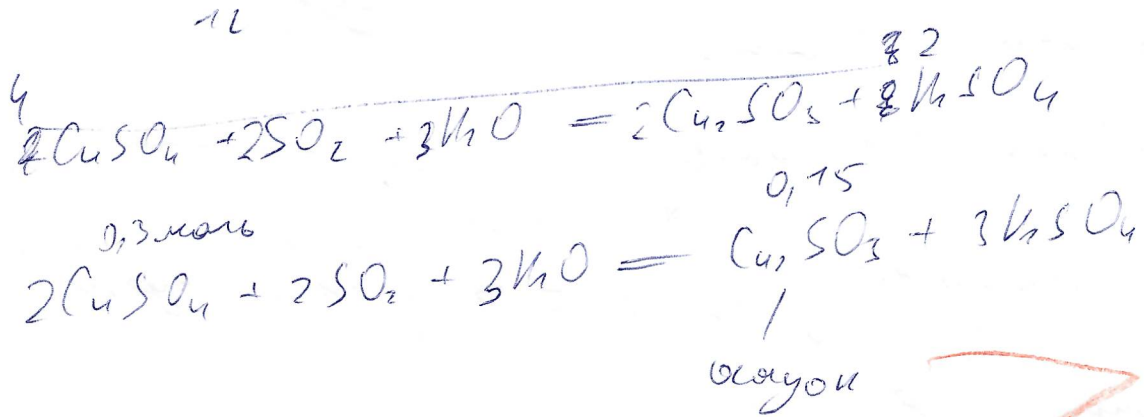 12
4CuSO₄ + 2SO₂ + 3H₂O = 2Cu₂SO₃ + 2H₂SO₄
0,3 моль 0,15
2CuSO₄ + 2SO₂ + 3H₂O = Cu₂SO₃ + 3H₂SO₄
осадок